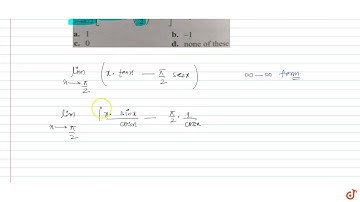 a. 1 b. −1
c. 0 d. none of these
lim x→π/2 (x · tanx − π/2 secx) ∞−∞ form
lim x→π/2 (x · sinx/cosx − π/2 · 1/cosx